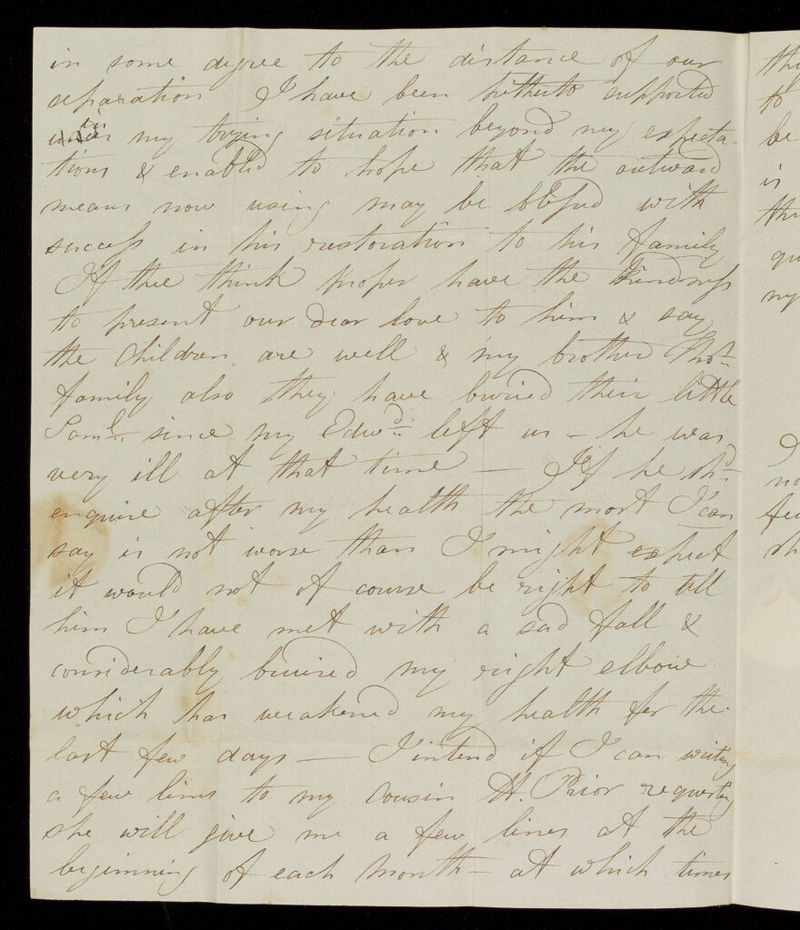 in some degree to the distance of our
separation I have been hitherto supported
in my trying situation beyond my expecta-
tions & enabled to hope that the outward
means now using may be blessed with
success in his restoration to his family
If thee think proper have the kindness
to present our dear love to him & say
the children are well & my brother Thos
family also they have buried their little
Saml. since my Edwd. left us - he was
very ill at that time — If he shd.
enquire after my health the most I can
say is not worse than I might expect
it would not of course be right to tell
him I have met with a sad fall &
considerably bruised my right elbow
which has weakened my health for the
last few days — I intend if I can writing
a few lines to my Cousin H. Prior requesting
she will give me a few lines at the
beginning of each month - at which times
to
be
is
no